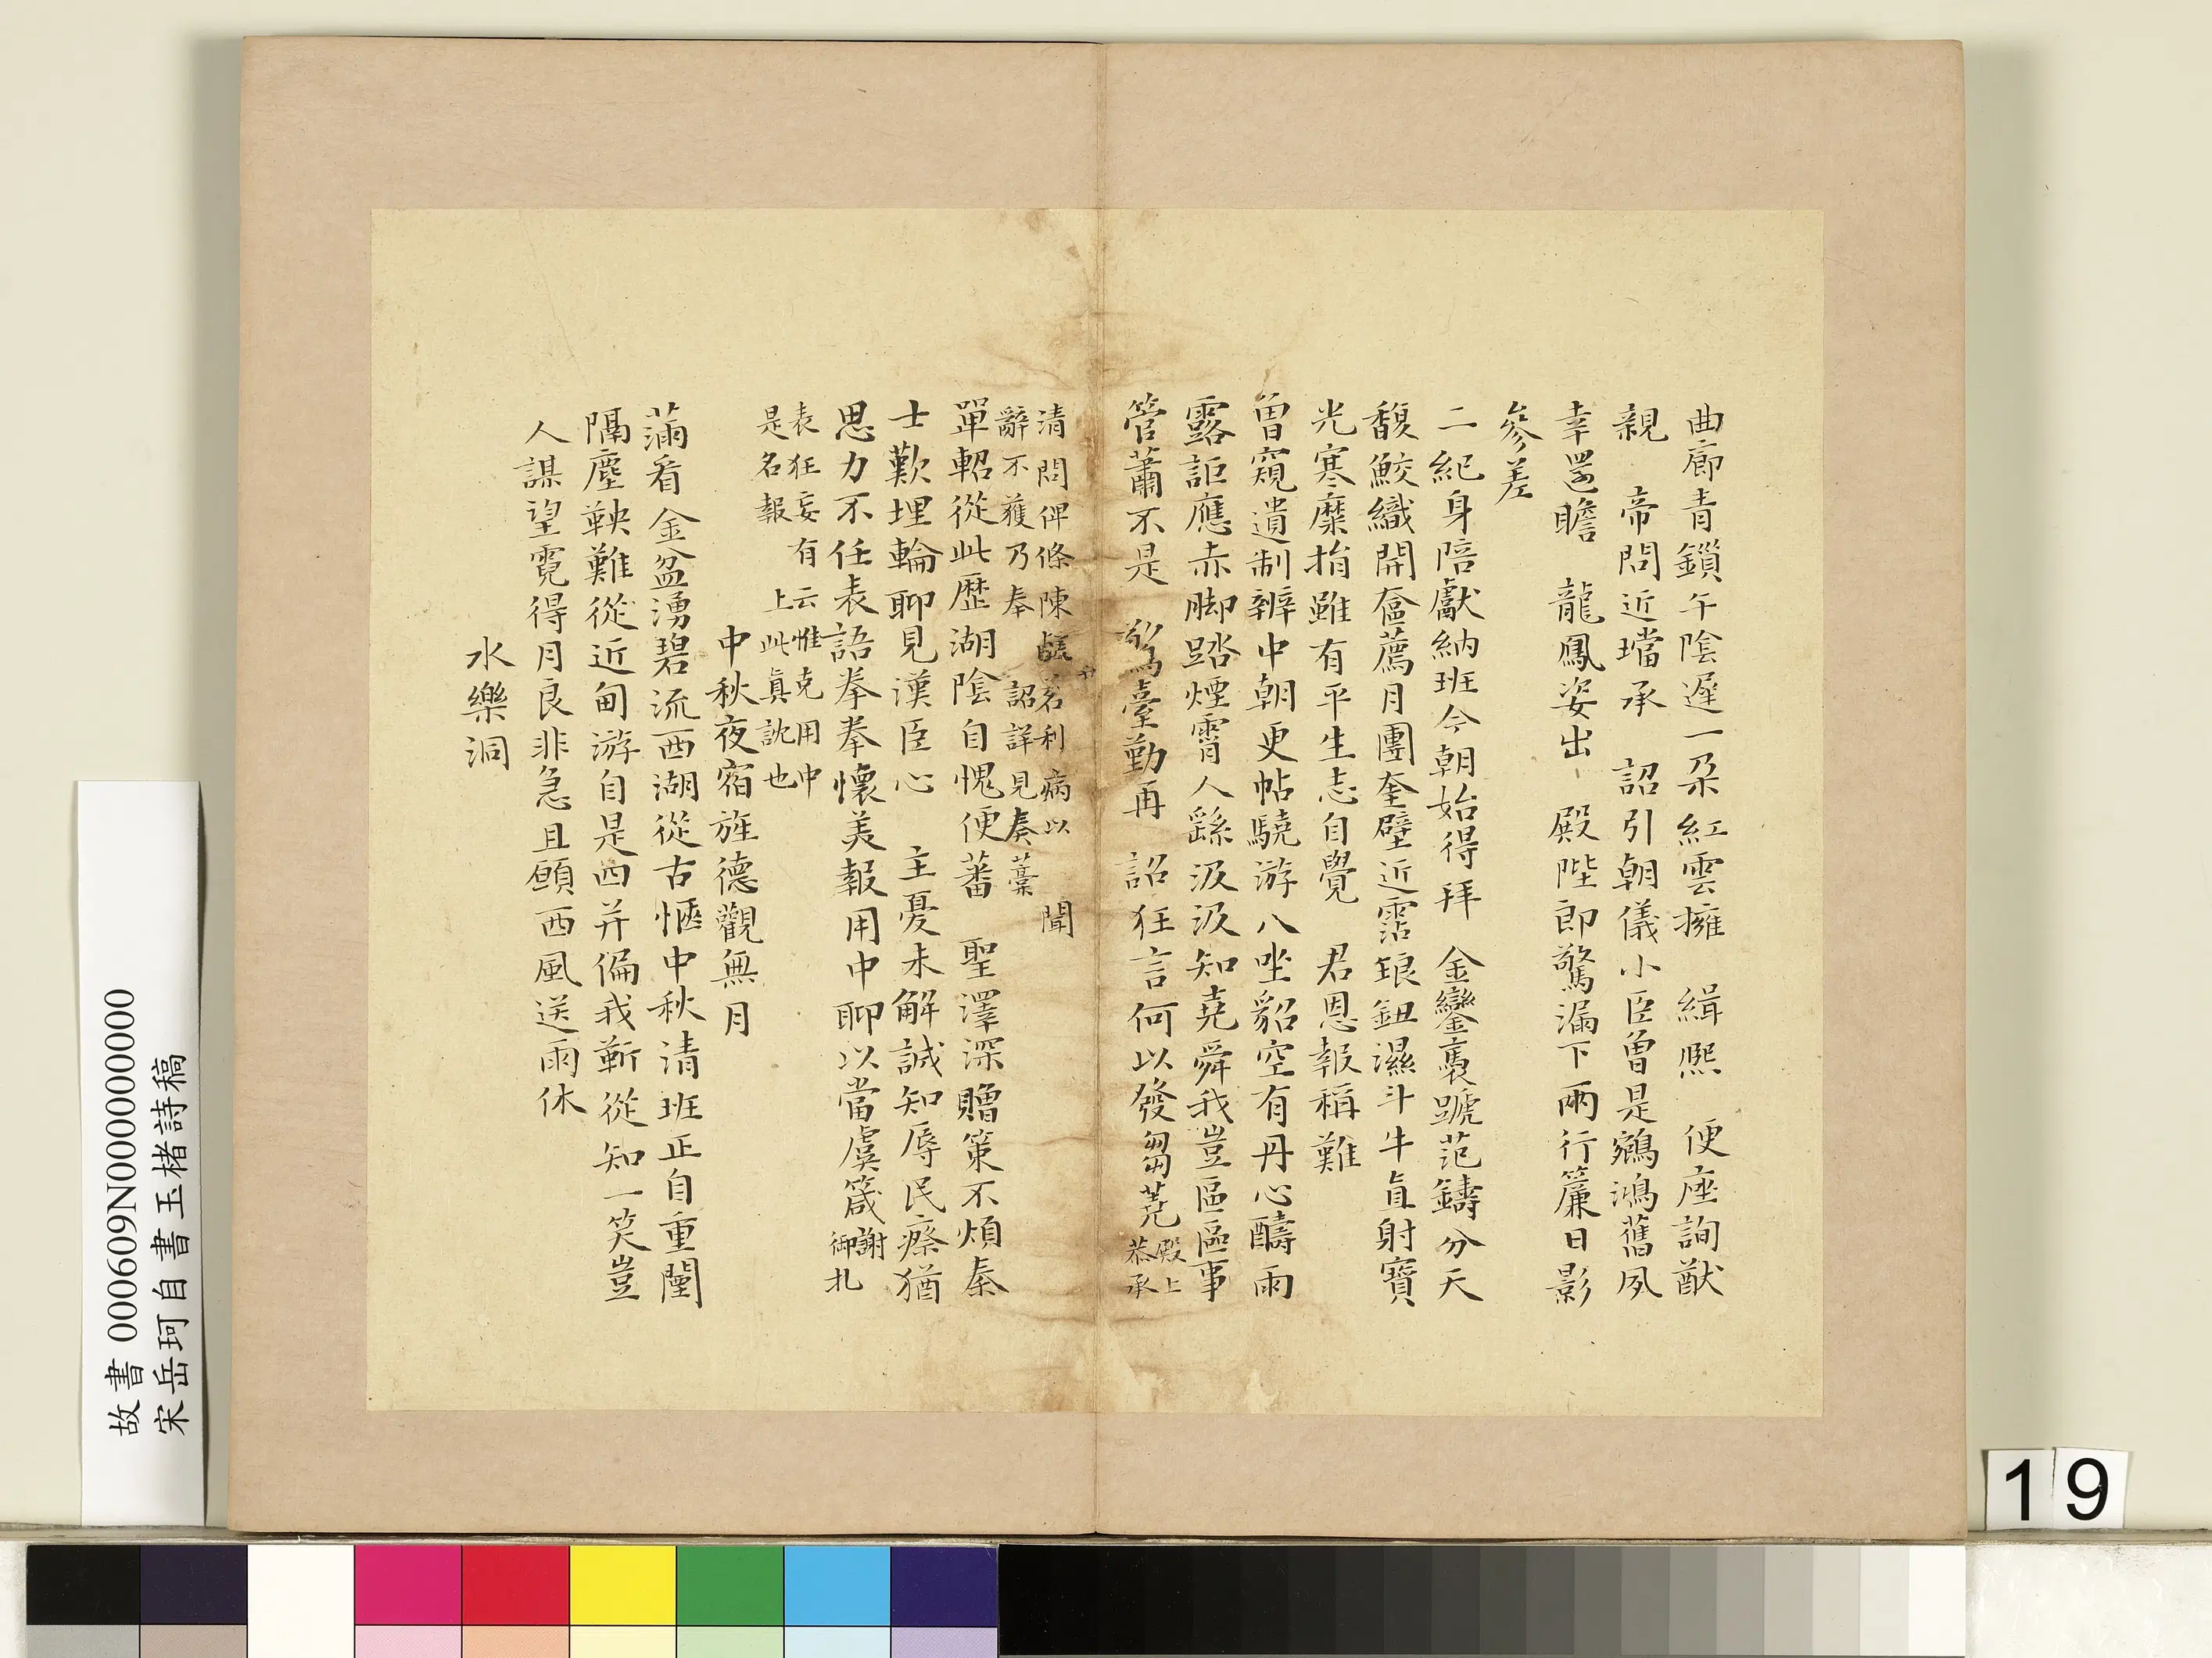 曲廊青鎖午陰遲一朶紅雲擁 緝熙 便座詢猷
親 帝問近璫承 詔引朝儀小臣曾是鵷鴻舊夙
幸還瞻 龍鳳姿出 殿陛即驚漏下兩行簾日影
參差
二紀身陪獻納班今朝始得拜 金鑾褭蹏范鑄分天
馥鮫織開奩薦月團奎壁近霑銀鈕濕斗牛直射寶
光寒糜捐雖有平生志自覺 君恩報稱難
曾窺遺制辨中朝更帖驍游八坐貂空有丹心醻雨
露詎應赤脚踏煙霄人繇汲汲知堯舜我豈區區事
管蕭不是 鸞臺勤再 詔狂言何以發芻蕘
殿上
恭承
清問俾條陳鹺茗利病以 聞
辭不獲乃奉 詔詳見奏藁
單軺從此歷湖陰自愧便蕃 聖澤深贈策不煩秦
士歎埋輪聊見漢臣心 主憂未解誠知辱民瘵猶
思力不任表語拳拳懷美報用中聊以當虞箴
謝
御札
表狂妄有云惟克用中
是名報 上此眞訦也
中秋夜宿旌德觀無月
滿看金盆湧碧流西湖從古愜中秋清班正自重闉
隔塵鞅難從近甸游自是西并偏我靳從知一笑豈
人謀望霓得月良非急且願西風送雨休
水樂洞
故書 000609N000000000
宋岳珂自書玉楮詩稿
19